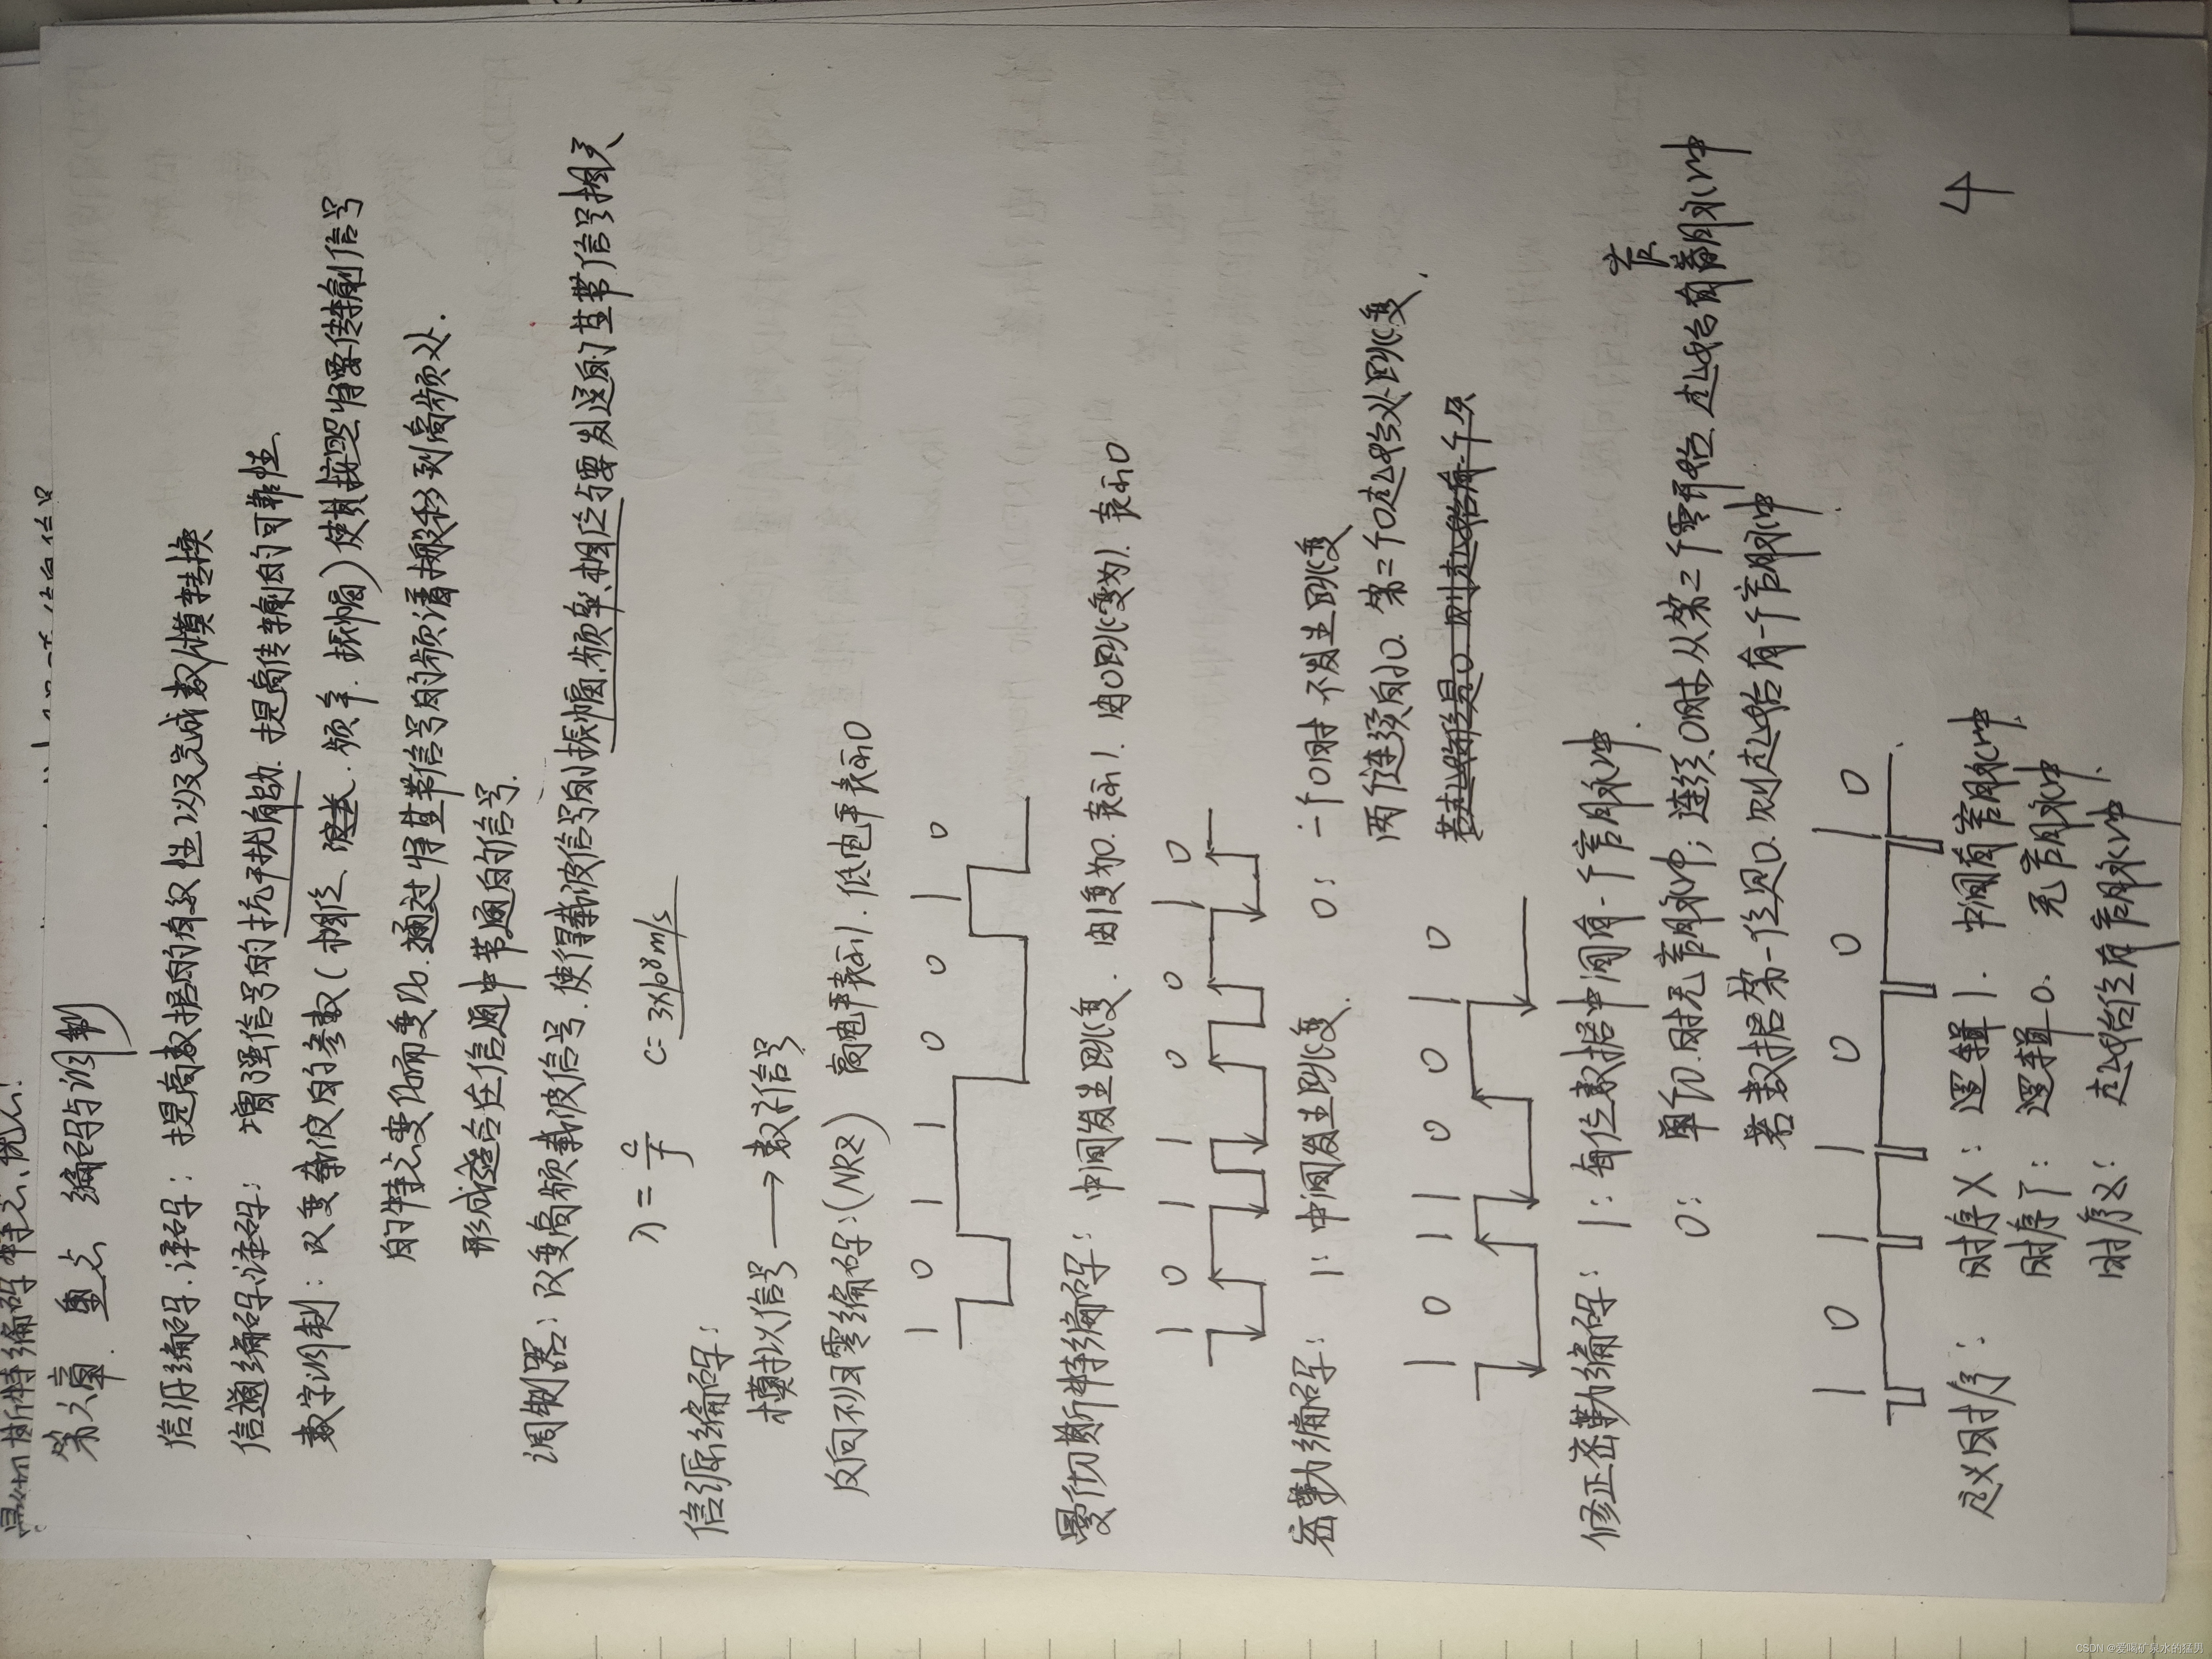 第六章. 重点 编码与调制
信源编码.译码: 提高数据的有效性以及完成数/模转换
信道编码.译码: 增强信号的抗干扰能力. 提高传输的可靠性.
数字调制: 改变载波的参数(相位、波长.频率.振幅)使其按照将要传输信号
的特点变化而变化. 通过将基带信号的频谱搬移到高频处.
形成适合在信道中传通的信号.
调制器: 改变高频载波信号.使得载波信号的振幅.频率、相位与要发送的基带信号相关
λ = c/f C = 3×10⁸m/s
信源编码:
模拟信号 → 数字信号
反向不归零编码:(NRZ) 高电平表示1. 低电平表示0
1 0 1 1 0 0 1 0
曼彻斯特编码: 中间发生跳变. 由1变为0.表示1. 由0跳变为1. 表示0
1 0 1 1 0 0 1 0
密勒编码: 1: 中间发生跳变. 0: 一个0时 不发生跳变
两个连续的0. 第二个0起始处跳变.
1 0 1 0 0 1 0
修正密勒编码: 1: 每位数据中间有一个言脉冲.
0: 单个0.时无言脉冲; 连续0时从第二个零开始 起始有言脉冲
若数据第一位是0.则起始有一个言脉冲.
1 0 1 1 0 0 1 0
定义时序: 时序X: 逻辑1. 中间有言脉冲.
时序Y: 逻辑0. 无言脉冲
时序Z: 起始位有言脉冲.
4
CSDN @爱喝矿泉水的猛男